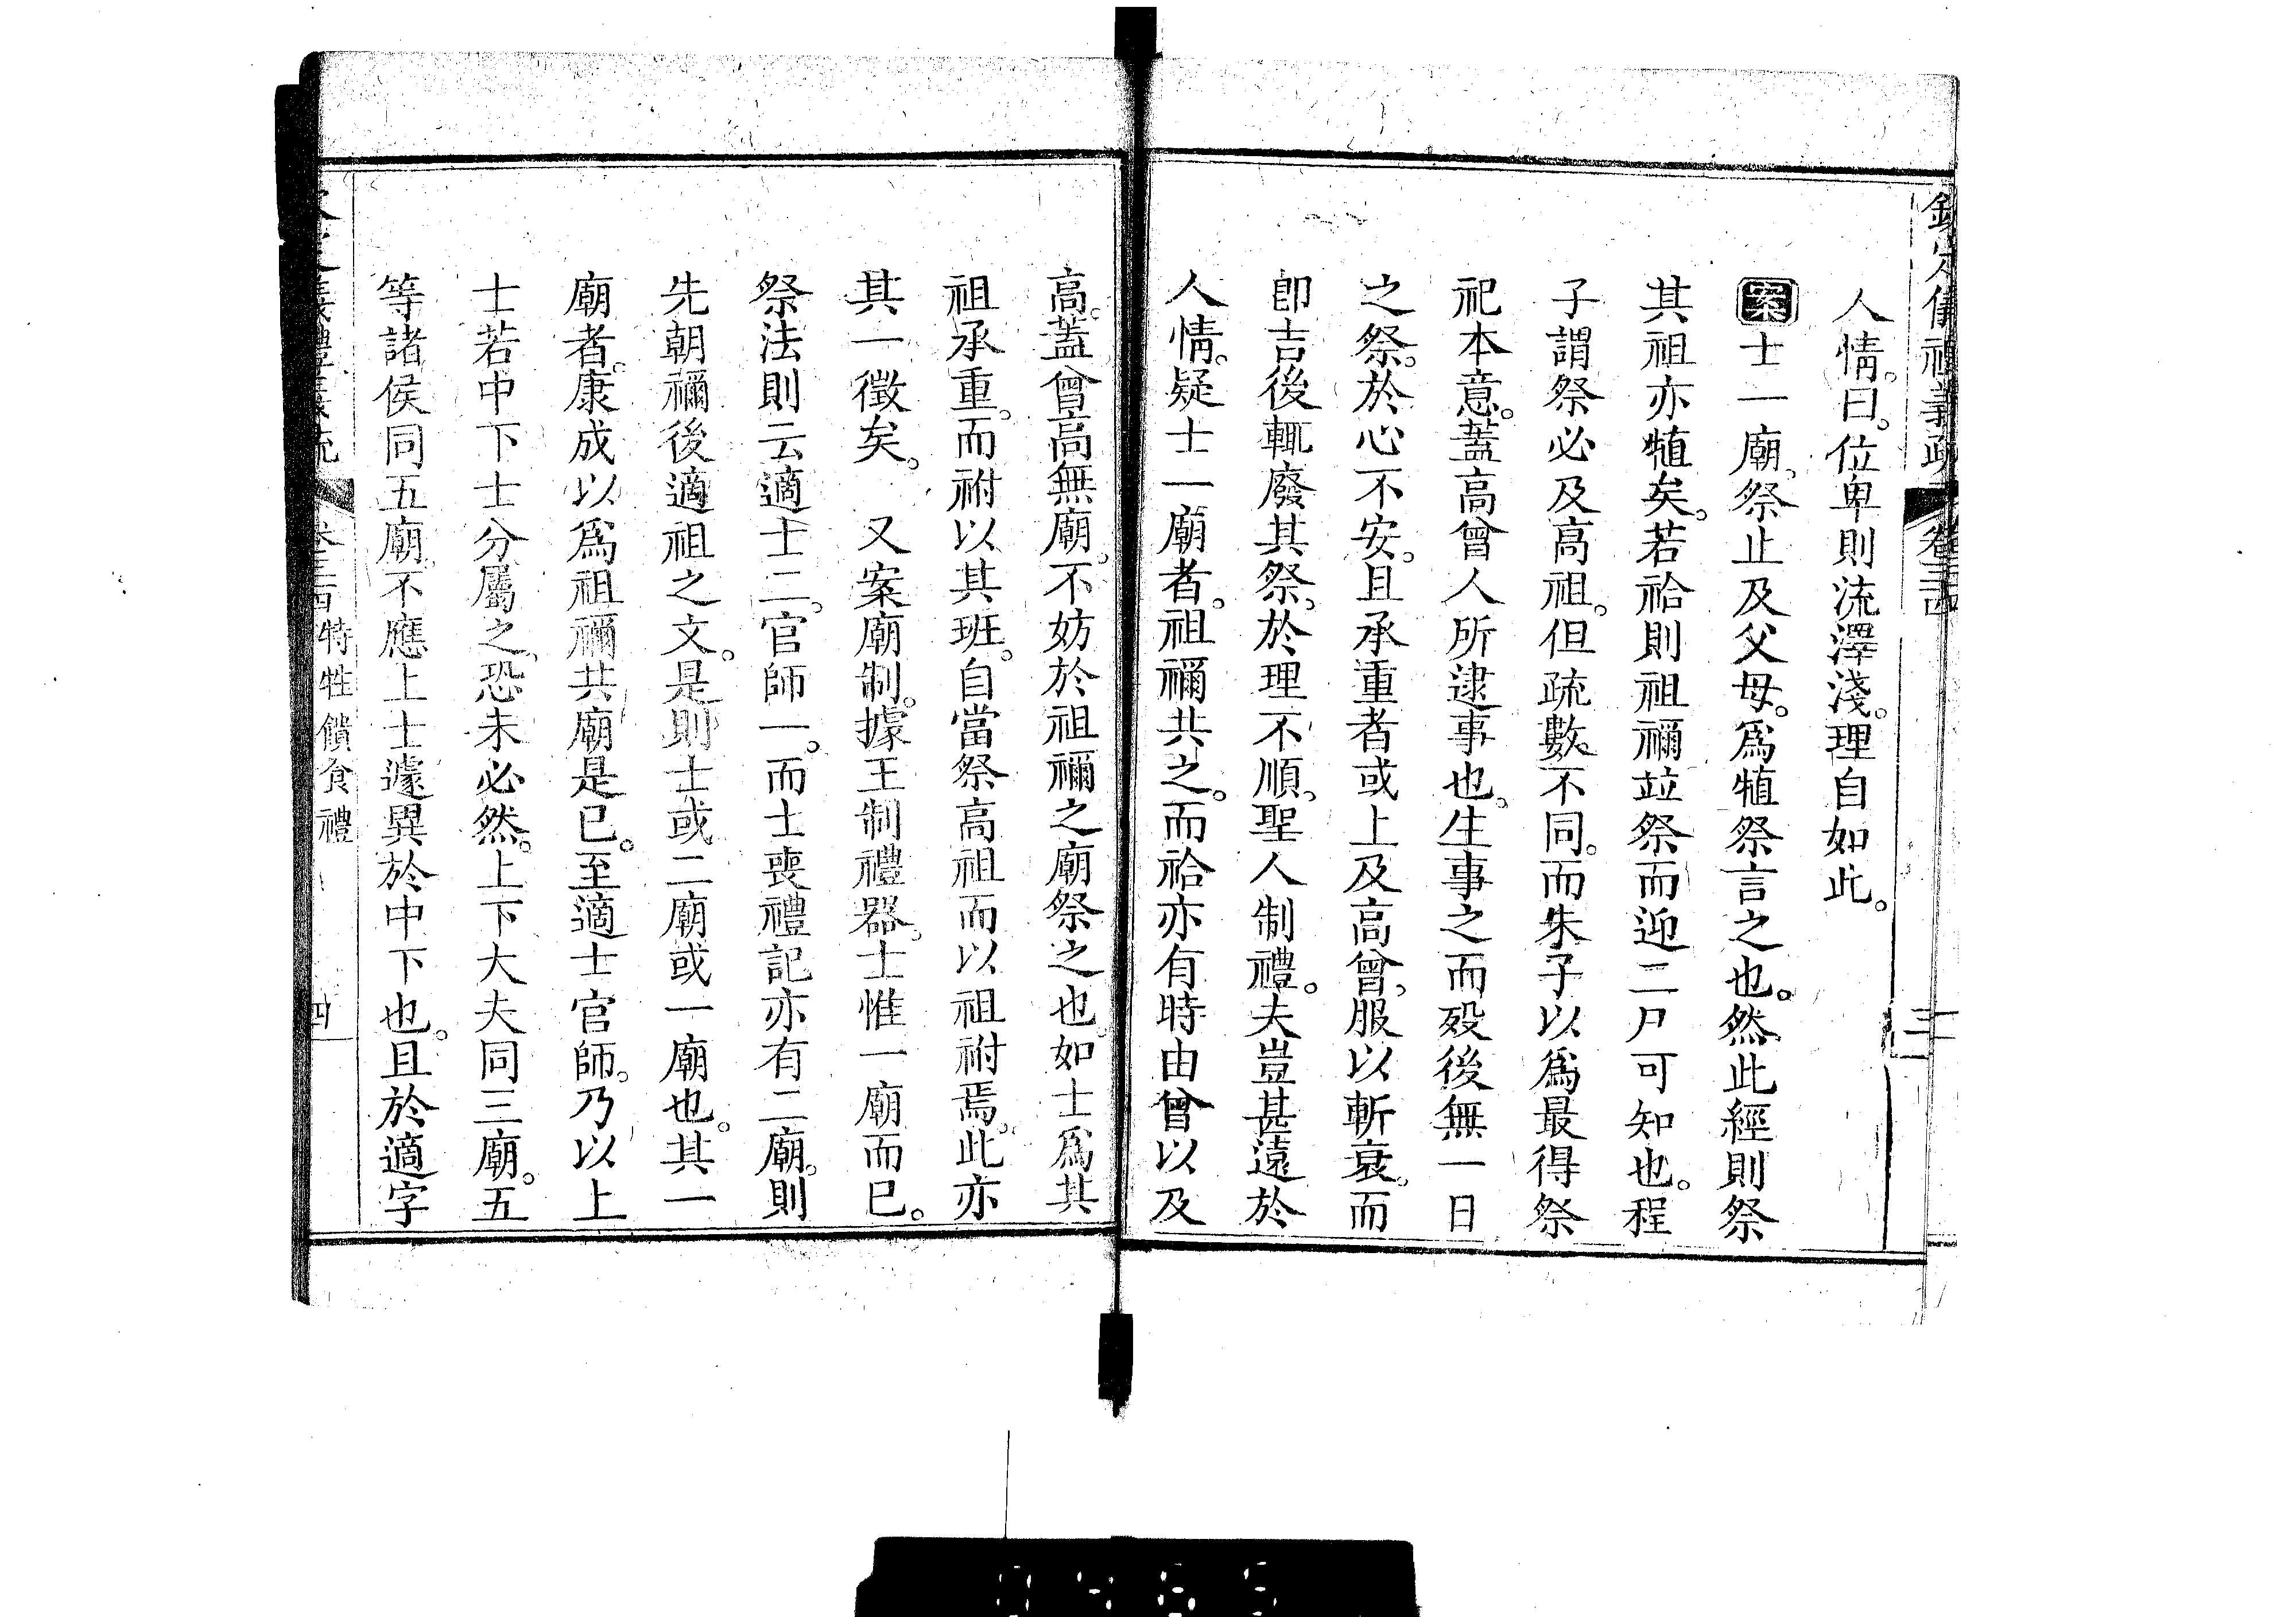 欽定儀禮義疏 卷三十四 三
人情。曰。位卑則流澤淺。理自如此。
案士一廟。祭止及父母。爲犆祭言之也。然此經則祭
其祖亦犆矣。若祫則祖禰竝祭而迎二尸可知也。程
子謂祭必及高祖。但疏數不同。而朱子以爲最得祭
祀本意。蓋高曾人所逮事也。生事之而歿後無一日
之祭。於心不安。且承重者或上及高曾。服以斬衰。而
卽吉後輒廢其祭。於理不順。聖人制禮。夫豈甚遠於
人情。疑士一廟者。祖禰共之。而祫亦有時由曾以及
高。蓋曾高無廟。不妨於祖禰之廟祭之也。如士爲其
祖承重。而祔以其班。自當祭高祖而以祖祔焉。此亦
其一徵矣。 又案廟制。據王制禮器。士惟一廟而已。
祭法則云適士二。官師一。而士喪禮記亦有二廟。則
先朝禰後適祖之文。是則士或二廟或一廟也。其一
廟者。康成以爲祖禰共廟是已。至適士官師。乃以上
士若中下士分屬之。恐未必然。上下大夫同三廟。五
等諸侯同五廟。不應上士遽異於中下也。且於適字
特牲饋食禮 四